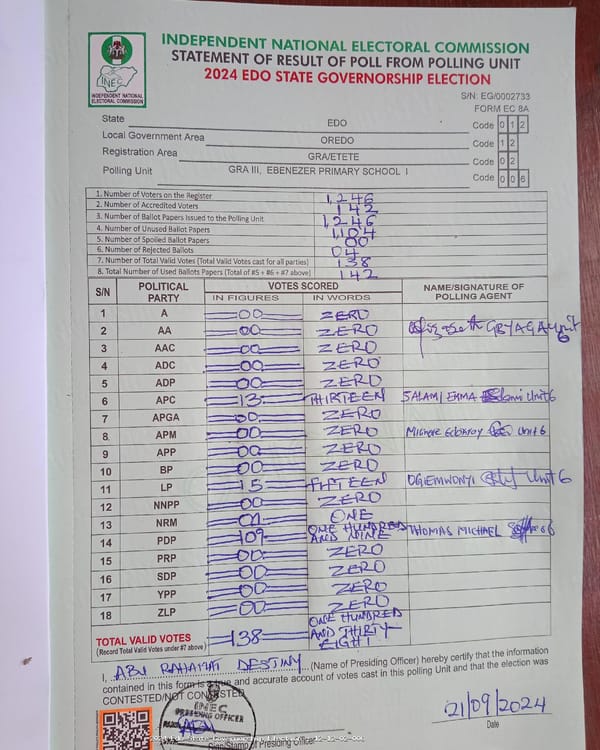 INDEPENDENT NATIONAL ELECTORAL COMMISSION
STATEMENT OF RESULT OF POLL FROM POLLING UNIT
2024 EDO STATE GOVERNORSHIP ELECTION
INEC
INDEPENDENT NATIONAL
ELECTORAL COMMISSION
S/N: EG/0002733
FORM EC 8A
State EDO Code 0 1 2
Local Government Area OREDO Code 1 2
Registration Area GRA/ETETE Code 0 2
Polling Unit GRA III, EBENEZER PRIMARY SCHOOL I Code 0 0 6
1. Number of Voters on the Register 1,246
2. Number of Accredited Voters 142
3. Number of Ballot Papers Issued to the Polling Unit 1,246
4. Number of Unused Ballot Papers 1,104
5. Number of Spoiled Ballot Papers 00
6. Number of Rejected Ballots 04
7. Number of Total Valid Votes (Total Valid Votes cast for all parties) 138
8. Total Number of Used Ballots Papers (Total of #5 + #6 + #7 above) 142
S/N POLITICAL PARTY VOTES SCORED NAME/SIGNATURE OF POLLING AGENT
IN FIGURES IN WORDS
1 A 00 ZERO
2 AA 00 ZERO
3 AAC 00 ZERO
4 ADC 00 ZERO
5 ADP 00 ZERO
6 APC 13 THIRTEEN SALAMI EMMA Unit 6
7 APGA 00 ZERO
8 APM 00 ZERO Unit 6
9 APP 00 ZERO
10 BP 00 ZERO
11 LP 15 FIFTEEN OGIEMWONYI Unit 6
12 NNPP 00 ZERO
13 NRM 01 ONE
14 PDP 109 ONE HUNDRED AND NINE THOMAS MICHAEL
15 PRP 00 ZERO
16 SDP 00 ZERO
17 YPP 00 ZERO
18 ZLP 00 ZERO
TOTAL VALID VOTES 138 ONE HUNDRED AND THIRTY EIGHT
(Record Total Valid Votes under #7 above)
I, ABU RAHAMAT DESTINY (Name of Presiding Officer) hereby certify that the information
contained in this form is a true and accurate account of votes cast in this polling Unit and that the election was
CONTESTED/NOT CONTESTED
INEC
PRESIDING OFFICER
21/09/2024
Date
Sign/Stamp of Presiding Officer